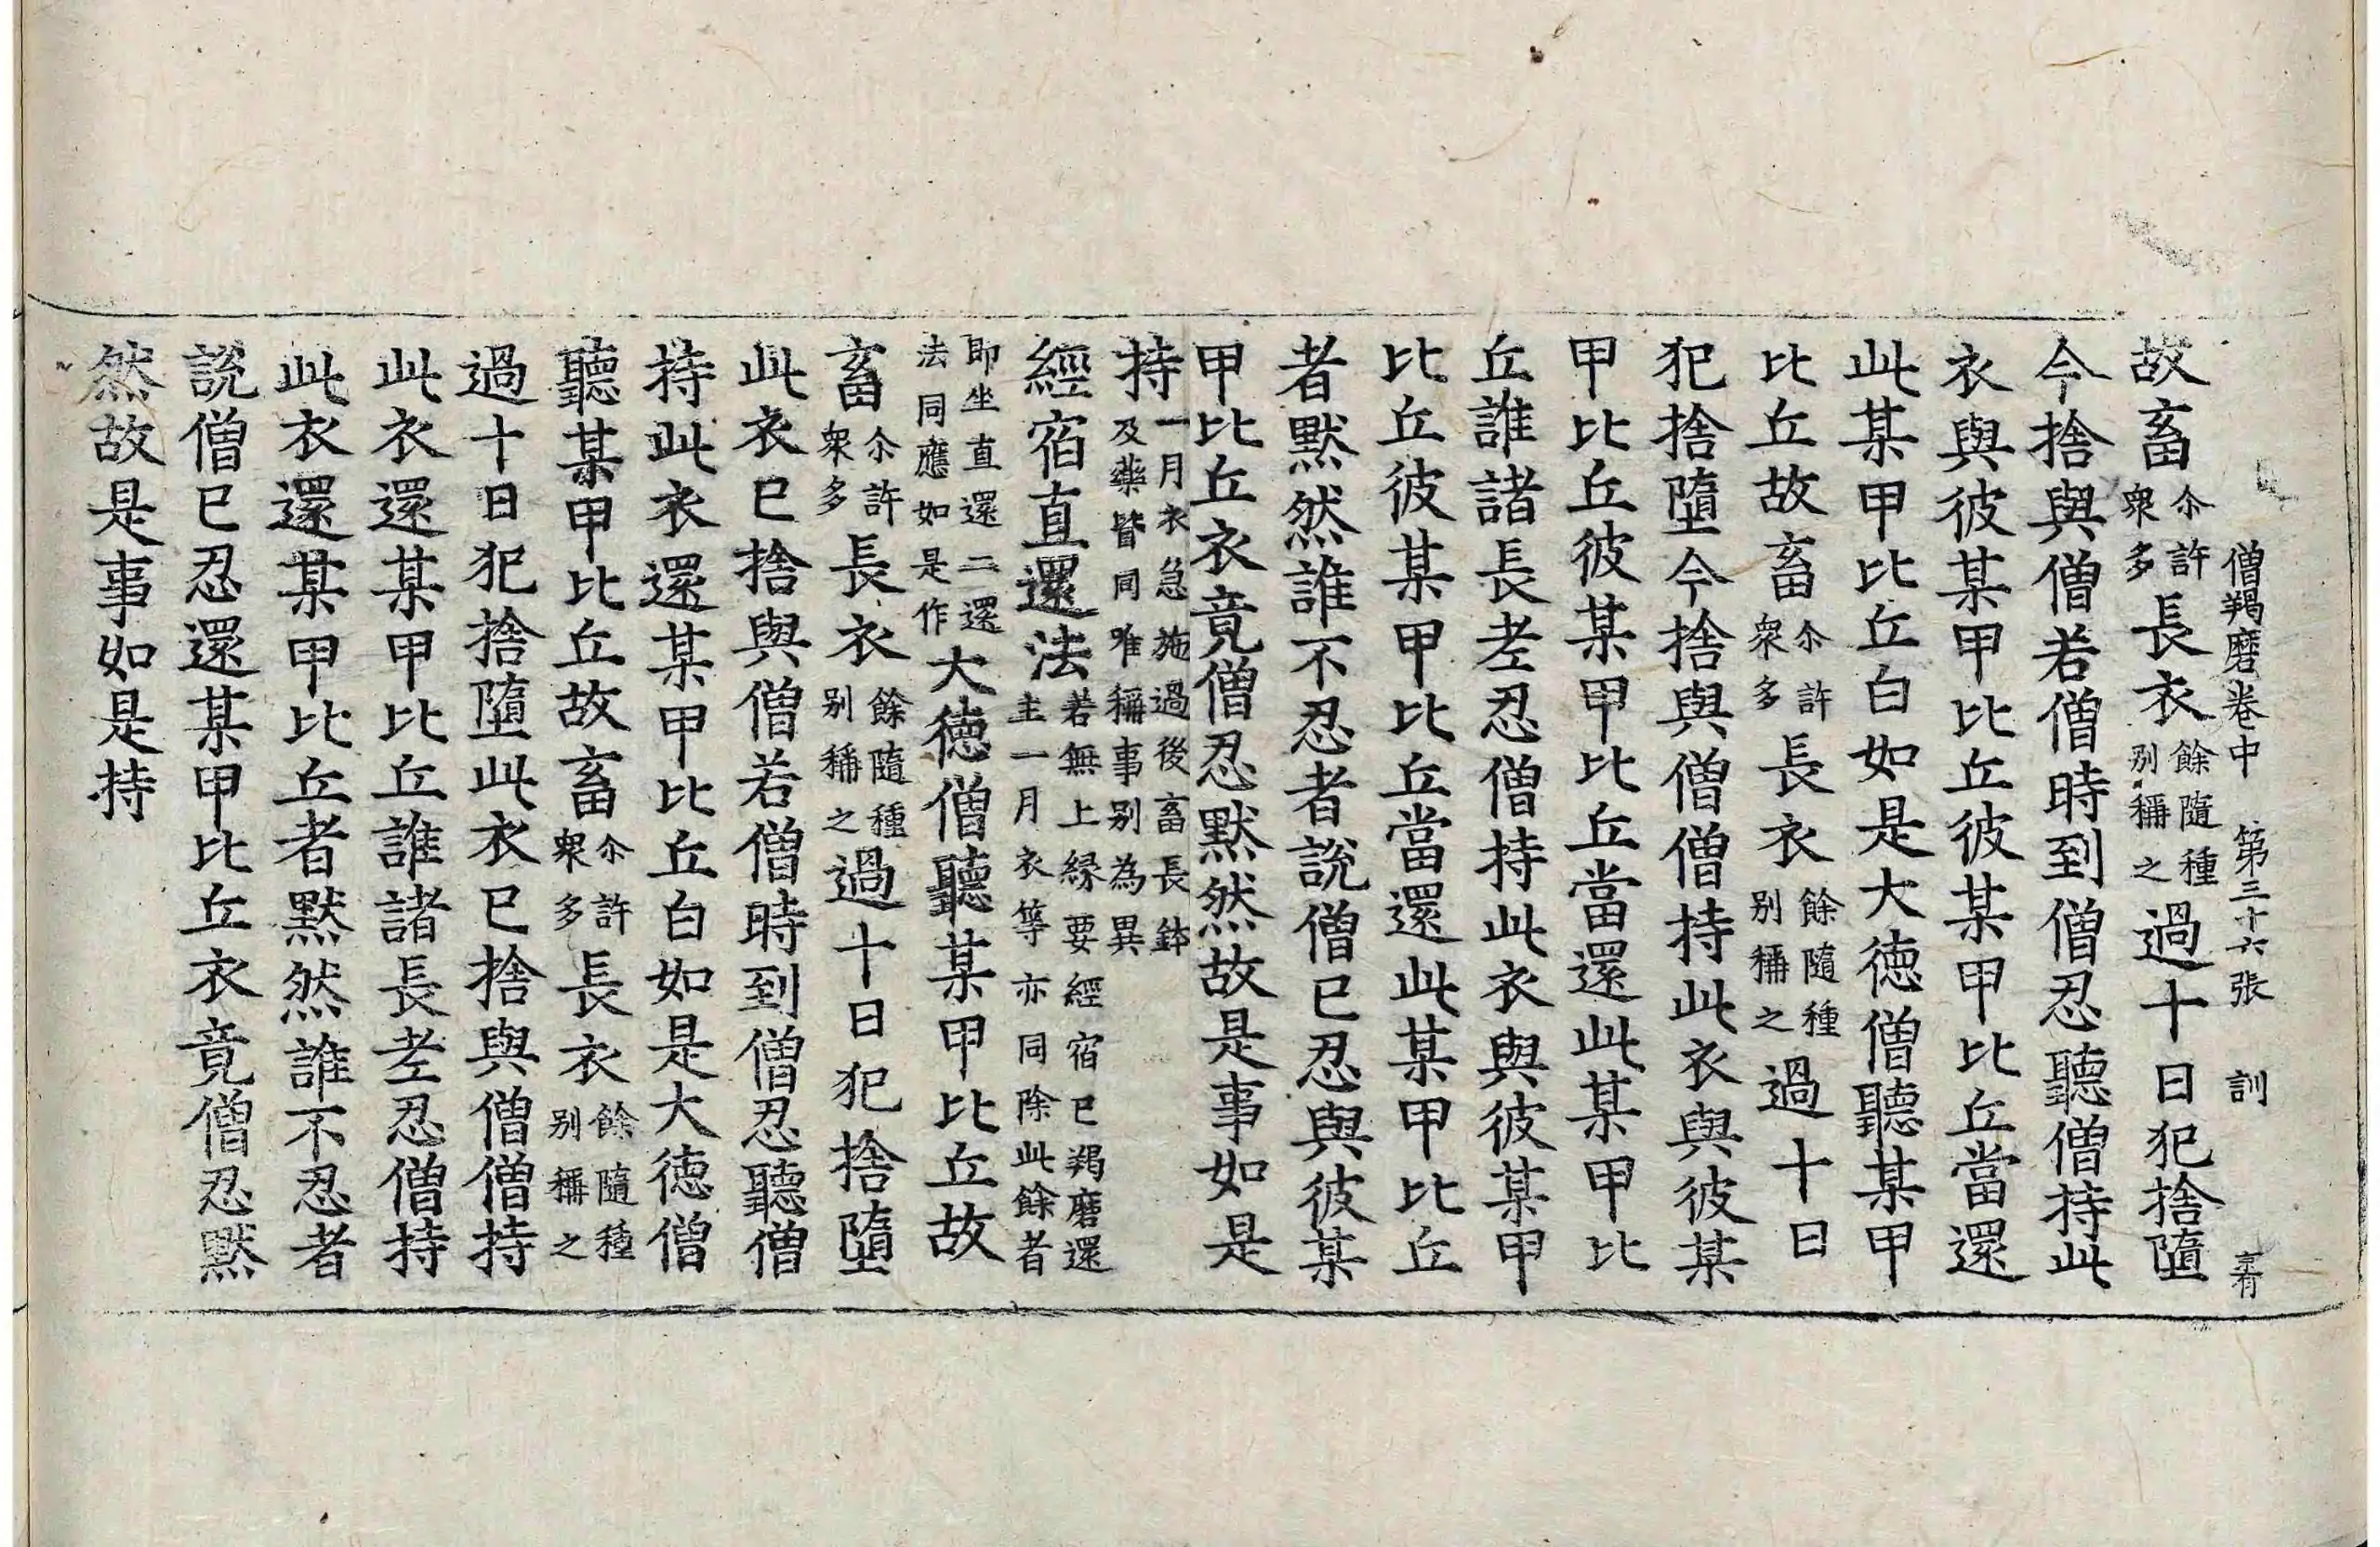 僧羯磨卷中　第三十六張　訓
故畜尒許衆多長衣餘隨種別稱之過十日犯捨墮
今捨與僧若僧時到僧忍聽僧持此
衣與彼某甲比丘彼某甲比丘當還
此某甲比丘白如是大德僧聽某甲
比丘故畜尒許衆多長衣餘隨種別稱之過十日
犯捨墮今捨與僧僧持此衣與彼某
甲比丘彼某甲比丘當還此某甲比
丘誰諸長老忍僧持此衣與彼某甲
比丘彼某甲比丘當還此某甲比丘
者默然誰不忍者說僧已忍與彼某
甲比丘衣竟僧忍默然故是事如是
持一月衣急施過後畜長鉢及藥皆同唯稱事別為異
經宿直還法若無上緣要經宿已羯磨還主一月衣等亦同除此餘者
即坐直還二還法同應如是作大德僧聽某甲比丘故
畜尒許衆多長衣餘隨種別稱之過十日犯捨墮
此衣已捨與僧若僧時到僧忍聽僧
持此衣還某甲比丘白如是大德僧
聽某甲比丘故畜尒許衆多長衣餘隨種別稱之
過十日犯捨墮此衣已捨與僧僧持
此衣還某甲比丘誰諸長老忍僧持
此衣還某甲比丘者默然誰不忍者
說僧已忍還某甲比丘衣竟僧忍默
然故是事如是持